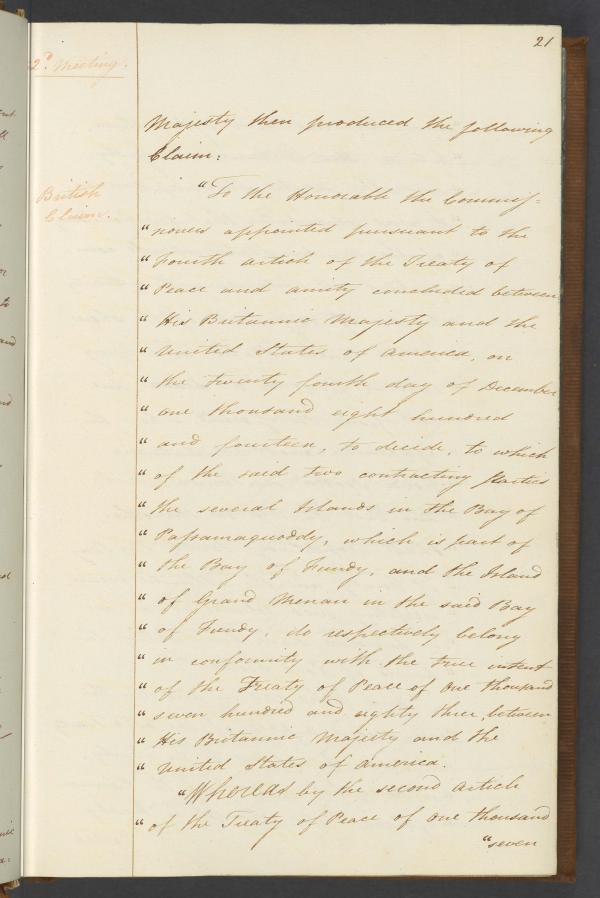 21
2d. Meeting.
Majesty then produced the following
Claim:
British
Claim.
"To the Honorable the Commis=
"sioners appointed pursuant to the
"Fourth article of the Treaty of
"Peace and amity concluded between
"His Britannic Majesty and the
"United States of america, on
"the twenty fourth day of December
"one thousand eight hundred
"and fourteen, to decide, to which
"of the said two contracting Parties
"the several Islands in the Bay of
"Passamaquoddy, which is part of
"the Bay of Fundy, and the Island
"of Grand Menan in the said Bay
"of Fundy, do respectively belong
"in conformity with the true intent
"of the Treaty of Peace of One thousand
"seven hundred and eighty three, between
"His Britannic Majesty and the
"United States of america.
"Whereas by the second article
"of the Treaty of Peace of One thousand
"seven